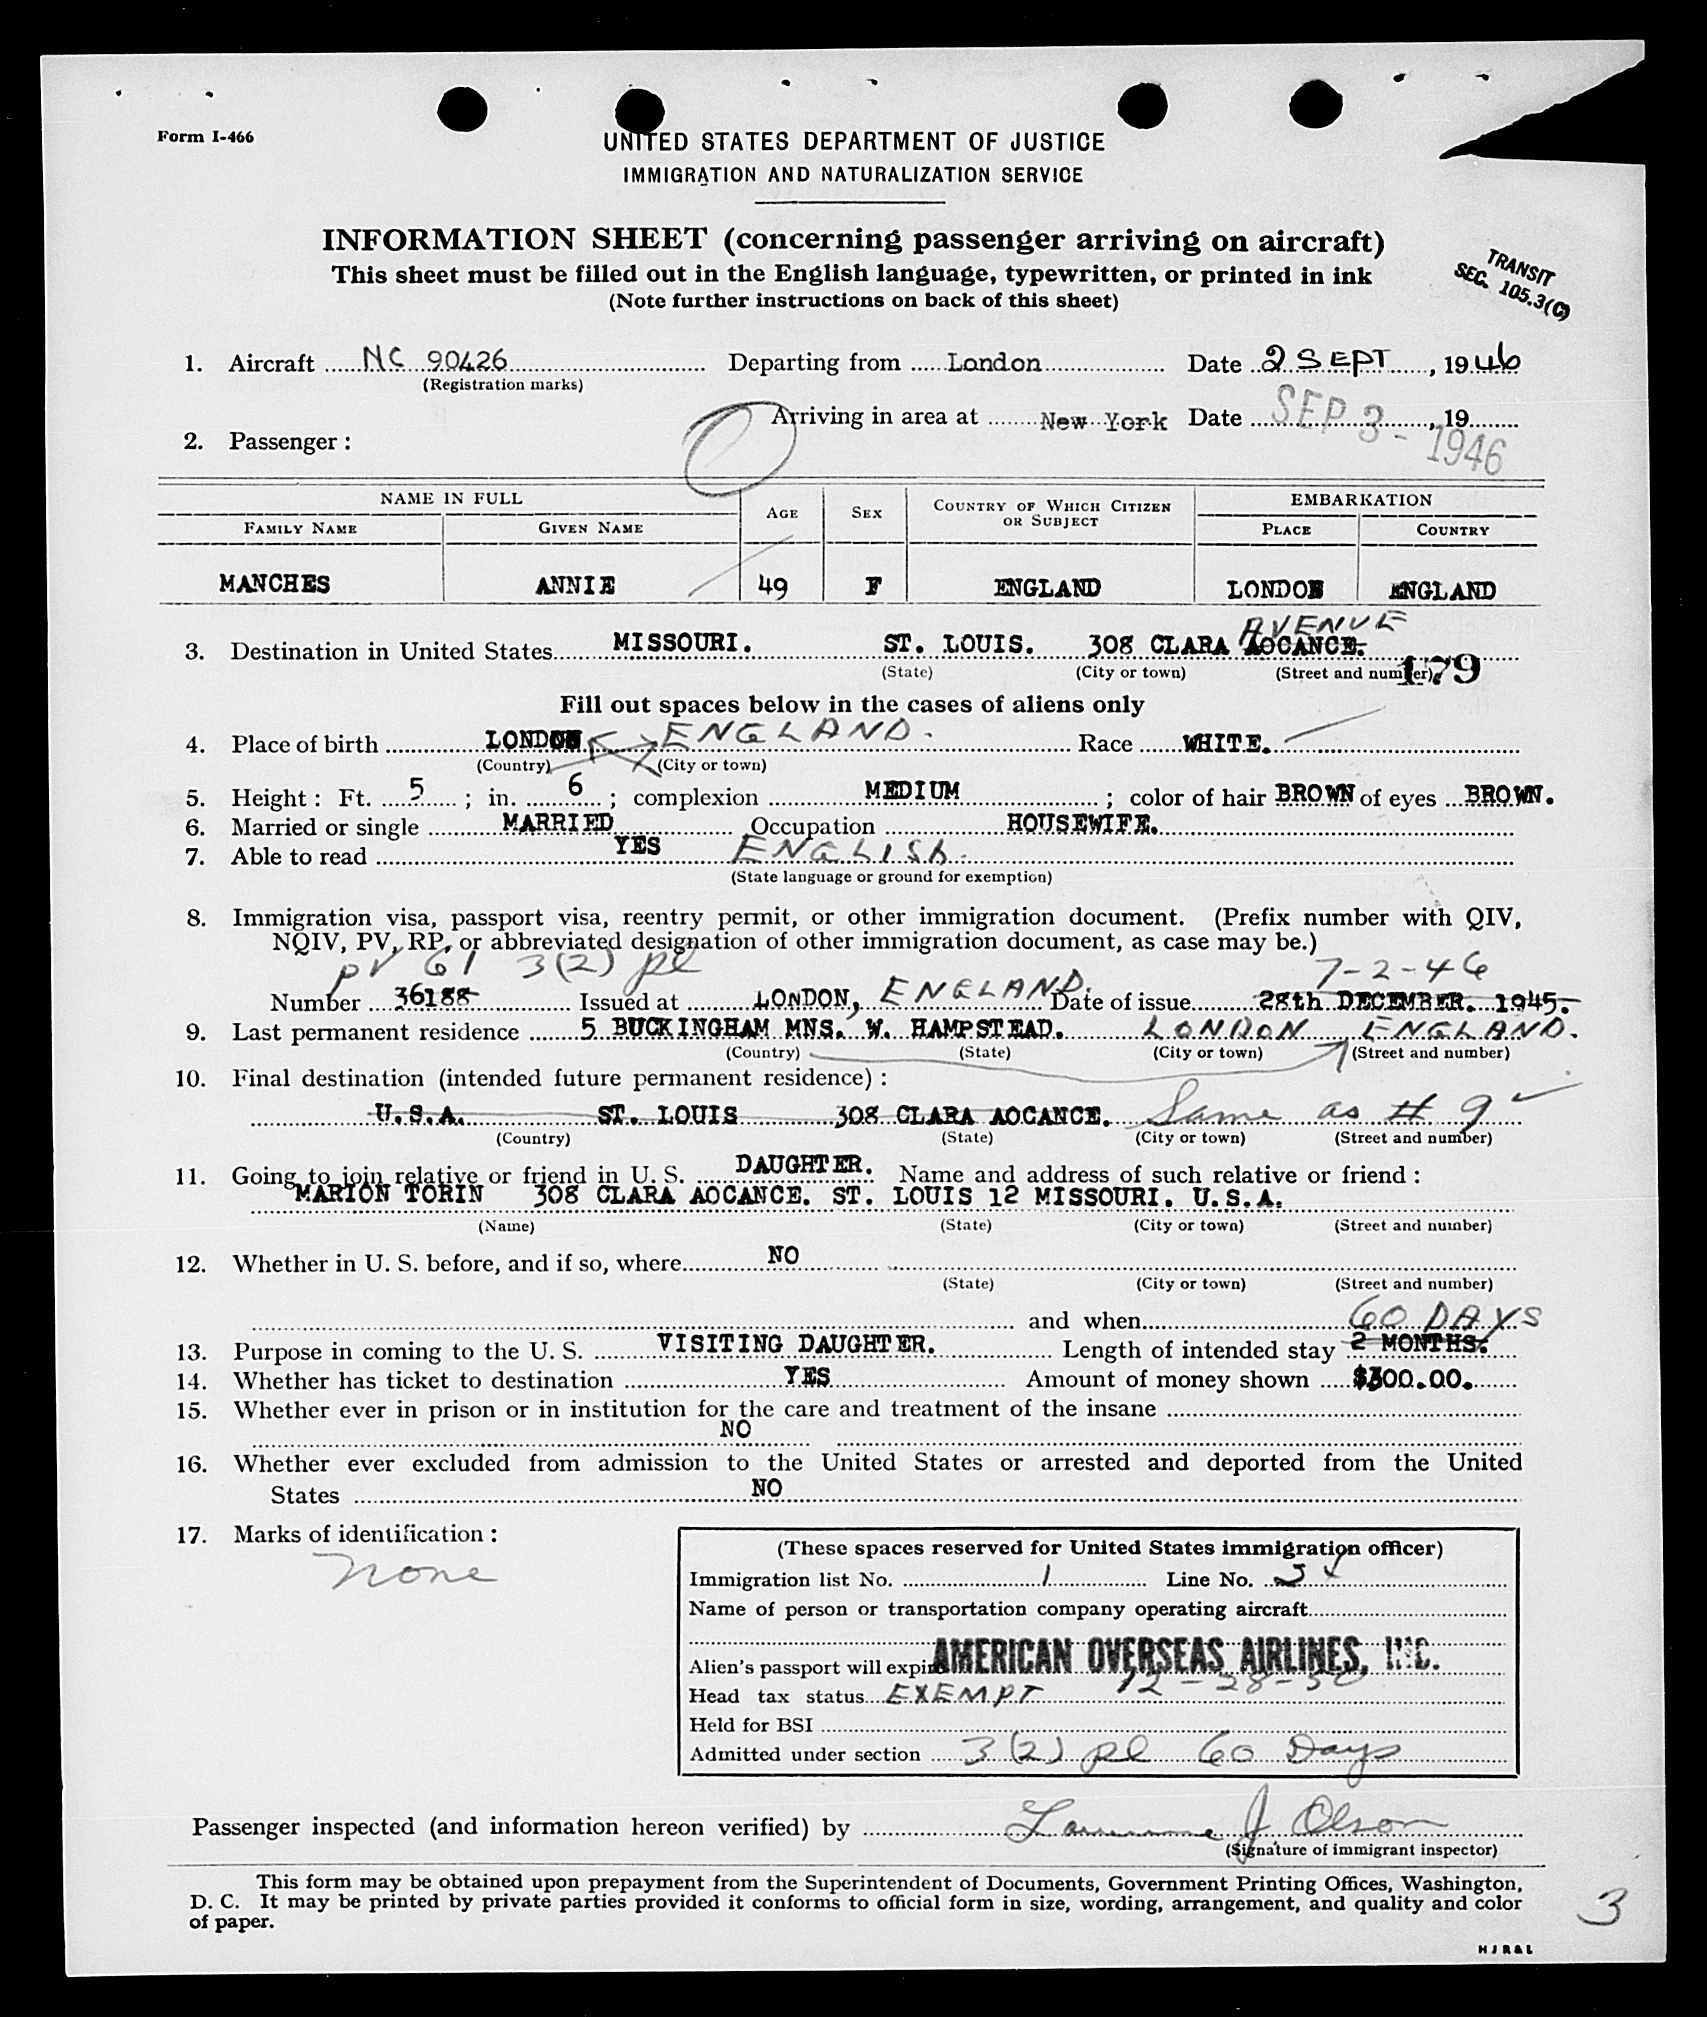 Form I-466
UNITED STATES DEPARTMENT OF JUSTICE
IMMIGRATION AND NATURALIZATION SERVICE
INFORMATION SHEET (concerning passenger arriving on aircraft)
This sheet must be filled out in the English language, typewritten, or printed in ink
(Note further instructions on back of this sheet)
TRANSIT
SEC. 105.3(C)
1. Aircraft NC 90426 Departing from London Date 2 SEPT, 1946
(Registration marks)
Arriving in area at New York Date SEP 3 - 1946, 19
2. Passenger:
NAME IN FULL AGE SEX COUNTRY OF WHICH CITIZEN OR SUBJECT EMBARKATION
FAMILY NAME GIVEN NAME PLACE COUNTRY
MANCHES ANNIE 49 F ENGLAND LONDON ENGLAND
AVENUE
3. Destination in United States MISSOURI. ST. LOUIS. 308 CLARA AOCANCE.
(State) (City or town) (Street and number) 179
Fill out spaces below in the cases of aliens only
4. Place of birth LONDON ENGLAND. Race WHITE.
(Country) (City or town)
5. Height: Ft. 5; in. 6; complexion MEDIUM; color of hair BROWN of eyes BROWN.
6. Married or single MARRIED Occupation HOUSEWIFE.
7. Able to read YES ENGLISH.
(State language or ground for exemption)
8. Immigration visa, passport visa, reentry permit, or other immigration document. (Prefix number with QIV,
NQIV, PV, RP, or abbreviated designation of other immigration document, as case may be.)
PV 61 3(2) pl 7-2-46
Number 36188 Issued at LONDON, ENGLAND. Date of issue 28th DECEMBER. 1945.
9. Last permanent residence 5 BUCKINGHAM MNS. W. HAMPSTEAD. LONDON ENGLAND.
(Country) (State) (City or town) (Street and number)
10. Final destination (intended future permanent residence):
U.S.A. ST. LOUIS 308 CLARA AOCANCE. Same as # 9
(Country) (State) (City or town) (Street and number)
11. Going to join relative or friend in U. S. DAUGHTER. Name and address of such relative or friend:
MARION TORIN 308 CLARA AOCANCE. ST. LOUIS 12 MISSOURI. U.S.A.
(Name) (State) (City or town) (Street and number)
12. Whether in U. S. before, and if so, where NO
(State) (City or town) (Street and number)
and when
60 DAYS
13. Purpose in coming to the U. S. VISITING DAUGHTER. Length of intended stay 2 MONTHS.
14. Whether has ticket to destination YES Amount of money shown $300.00.
15. Whether ever in prison or in institution for the care and treatment of the insane
NO
16. Whether ever excluded from admission to the United States or arrested and deported from the United
States NO
17. Marks of identification:
None
(These spaces reserved for United States immigration officer)
Immigration list No. 1 Line No. 3
Name of person or transportation company operating aircraft
AMERICAN OVERSEAS AIRLINES, INC.
Alien's passport will expire 12-28-50
Head tax status EXEMPT
Held for BSI
Admitted under section 3(2) pl 60 Days
Passenger inspected (and information hereon verified) by Lawrence J. Olson
(Signature of immigrant inspector)
This form may be obtained upon prepayment from the Superintendent of Documents, Government Printing Offices, Washington,
D. C. It may be printed by private parties provided it conforms to official form in size, wording, arrangement, and quality and color
of paper.
3
HJR&L